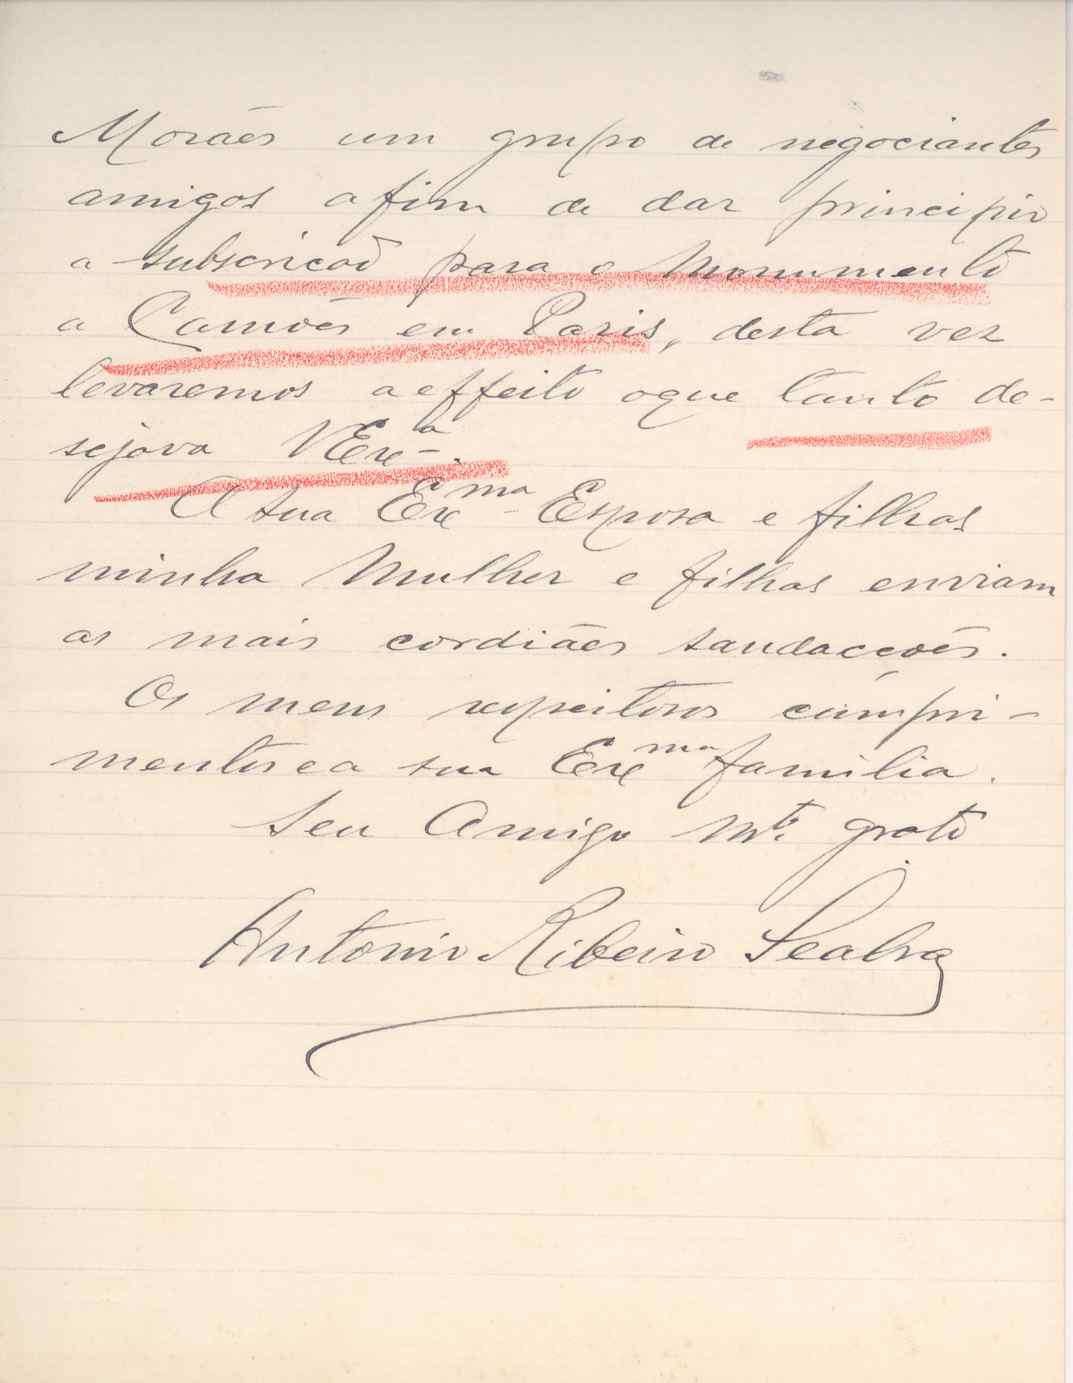 Moraẽs um grupo de negociantes
amigos afim de dar principio
a subscricaõ para o Monumento
a Camoẽs em Paris, desta vez
levaremos a effeito oque tanto de-
sejava VExª.
A sua Exma Esposa e filhas
minha Mulher e filhas enviam
as mais cordiães saudaçoẽs.
Os meus respeitosos cumpri-
mentos e a sua Exma familia.
Seu Amigo Mto. grato
Antonio Ribeiro Seabra